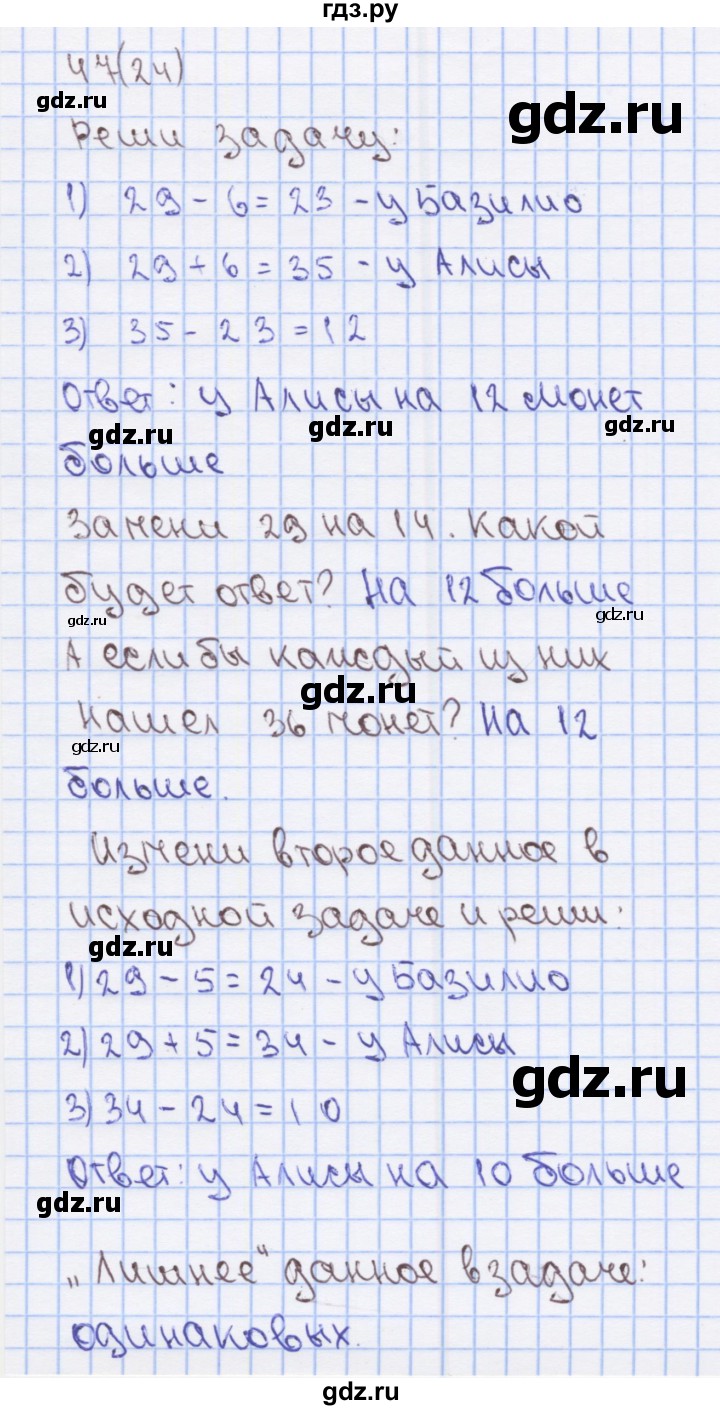 гдз.ру
47(24)
gdz.ru
gdz.ru
Реши задачу:
1) 29 - 6 = 23 - у Базилио
2) 29 + 6 = 35 - у Алисы
3) 35 - 23 = 12
Ответ: у Алисы на 12 монет
gdz.ru gdz.ru gdz.ru
больше
Замени 29 на 14. Какой
будет ответ? На 12 больше
gdz.ru gdz.ru
А если бы каждый из них
gdz.ru
нашел 36 монет? На 12
gdz.ru
больше.
Измени второе данное в
исходной задаче и реши:
gdz.ru
1) 29 - 5 = 24 - у Базилио
2) 29 + 5 = 34 - у Алисы
gdz.ru
3) 34 - 24 = 10
Ответ: у Алисы на 10 больше
gdz.ru
"Лишнее" данное в задаче:
одинаковых.
gdz.ru